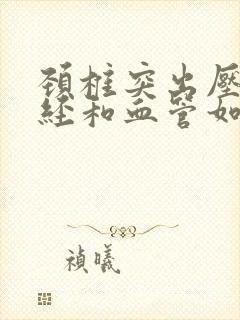 頚椎突出壓
經和血管如
禎曦